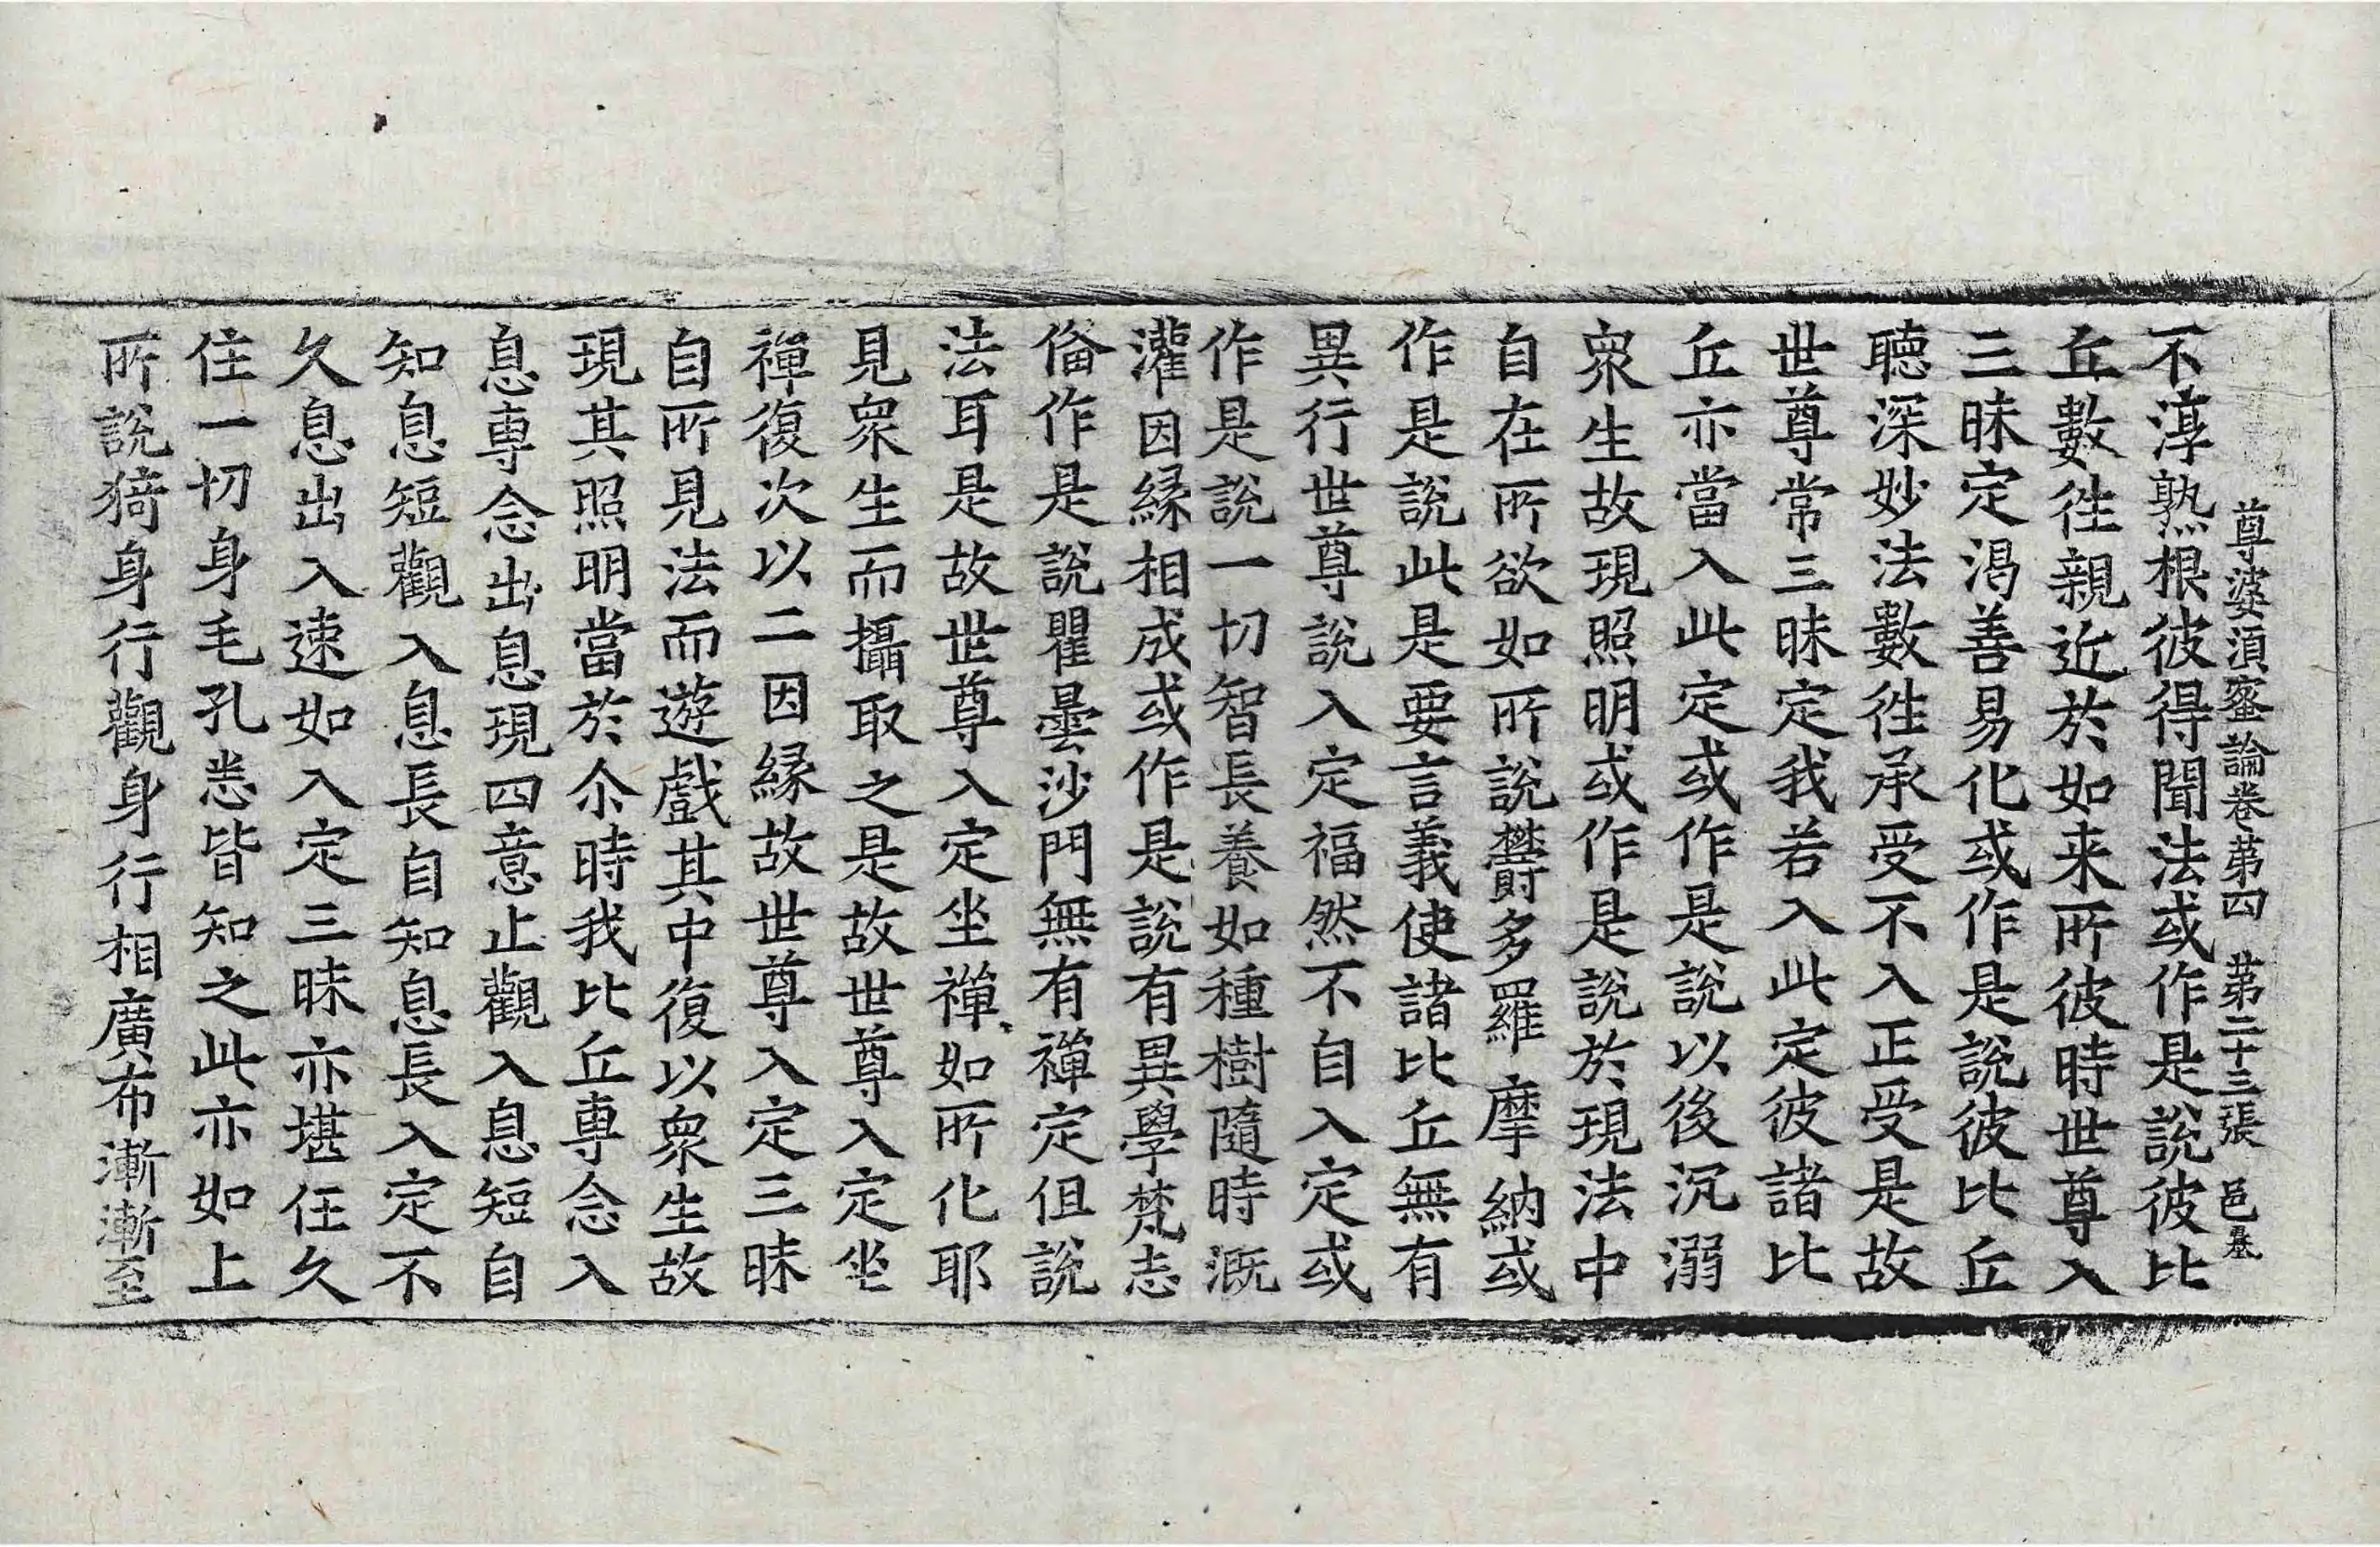 尊婆湏蜜論卷第四　第二十三張　邑
不淳熟根彼得聞法或作是說彼比
丘數徃親近於如来所彼時世尊入
三昧定渴善易化或作是說彼比丘
聴深妙法數徃承受不入正受是故
世尊常三昧定我若入此定彼諸比
丘亦當入此定或作是說以後沉溺
衆生故現照明或作是說於現法中
自在所欲如所說欝多羅摩納或
作是說此是要言義使諸比丘無有
異行世尊說入定福然不自入定或
作是說一切智長養如種樹隨時溉
灌因縁相成或作是說有異學梵志
俻作是說瞿曇沙門無有禪定但說
法耳是故世尊入定坐禪如所化耶
見衆生而攝取之是故世尊入定坐
禪復次以二因縁故世尊入定三昧
自所見法而遊戲其中復以衆生故
現其照明當於尒時我比丘専念入
息専念出息現四意止觀入息短自
知息短觀入息長自知息長入定不
久息出入速如入定三昧亦堪任久
住一切身毛孔悉皆知之此亦如上
所說猗身行觀身行相廣布漸漸至